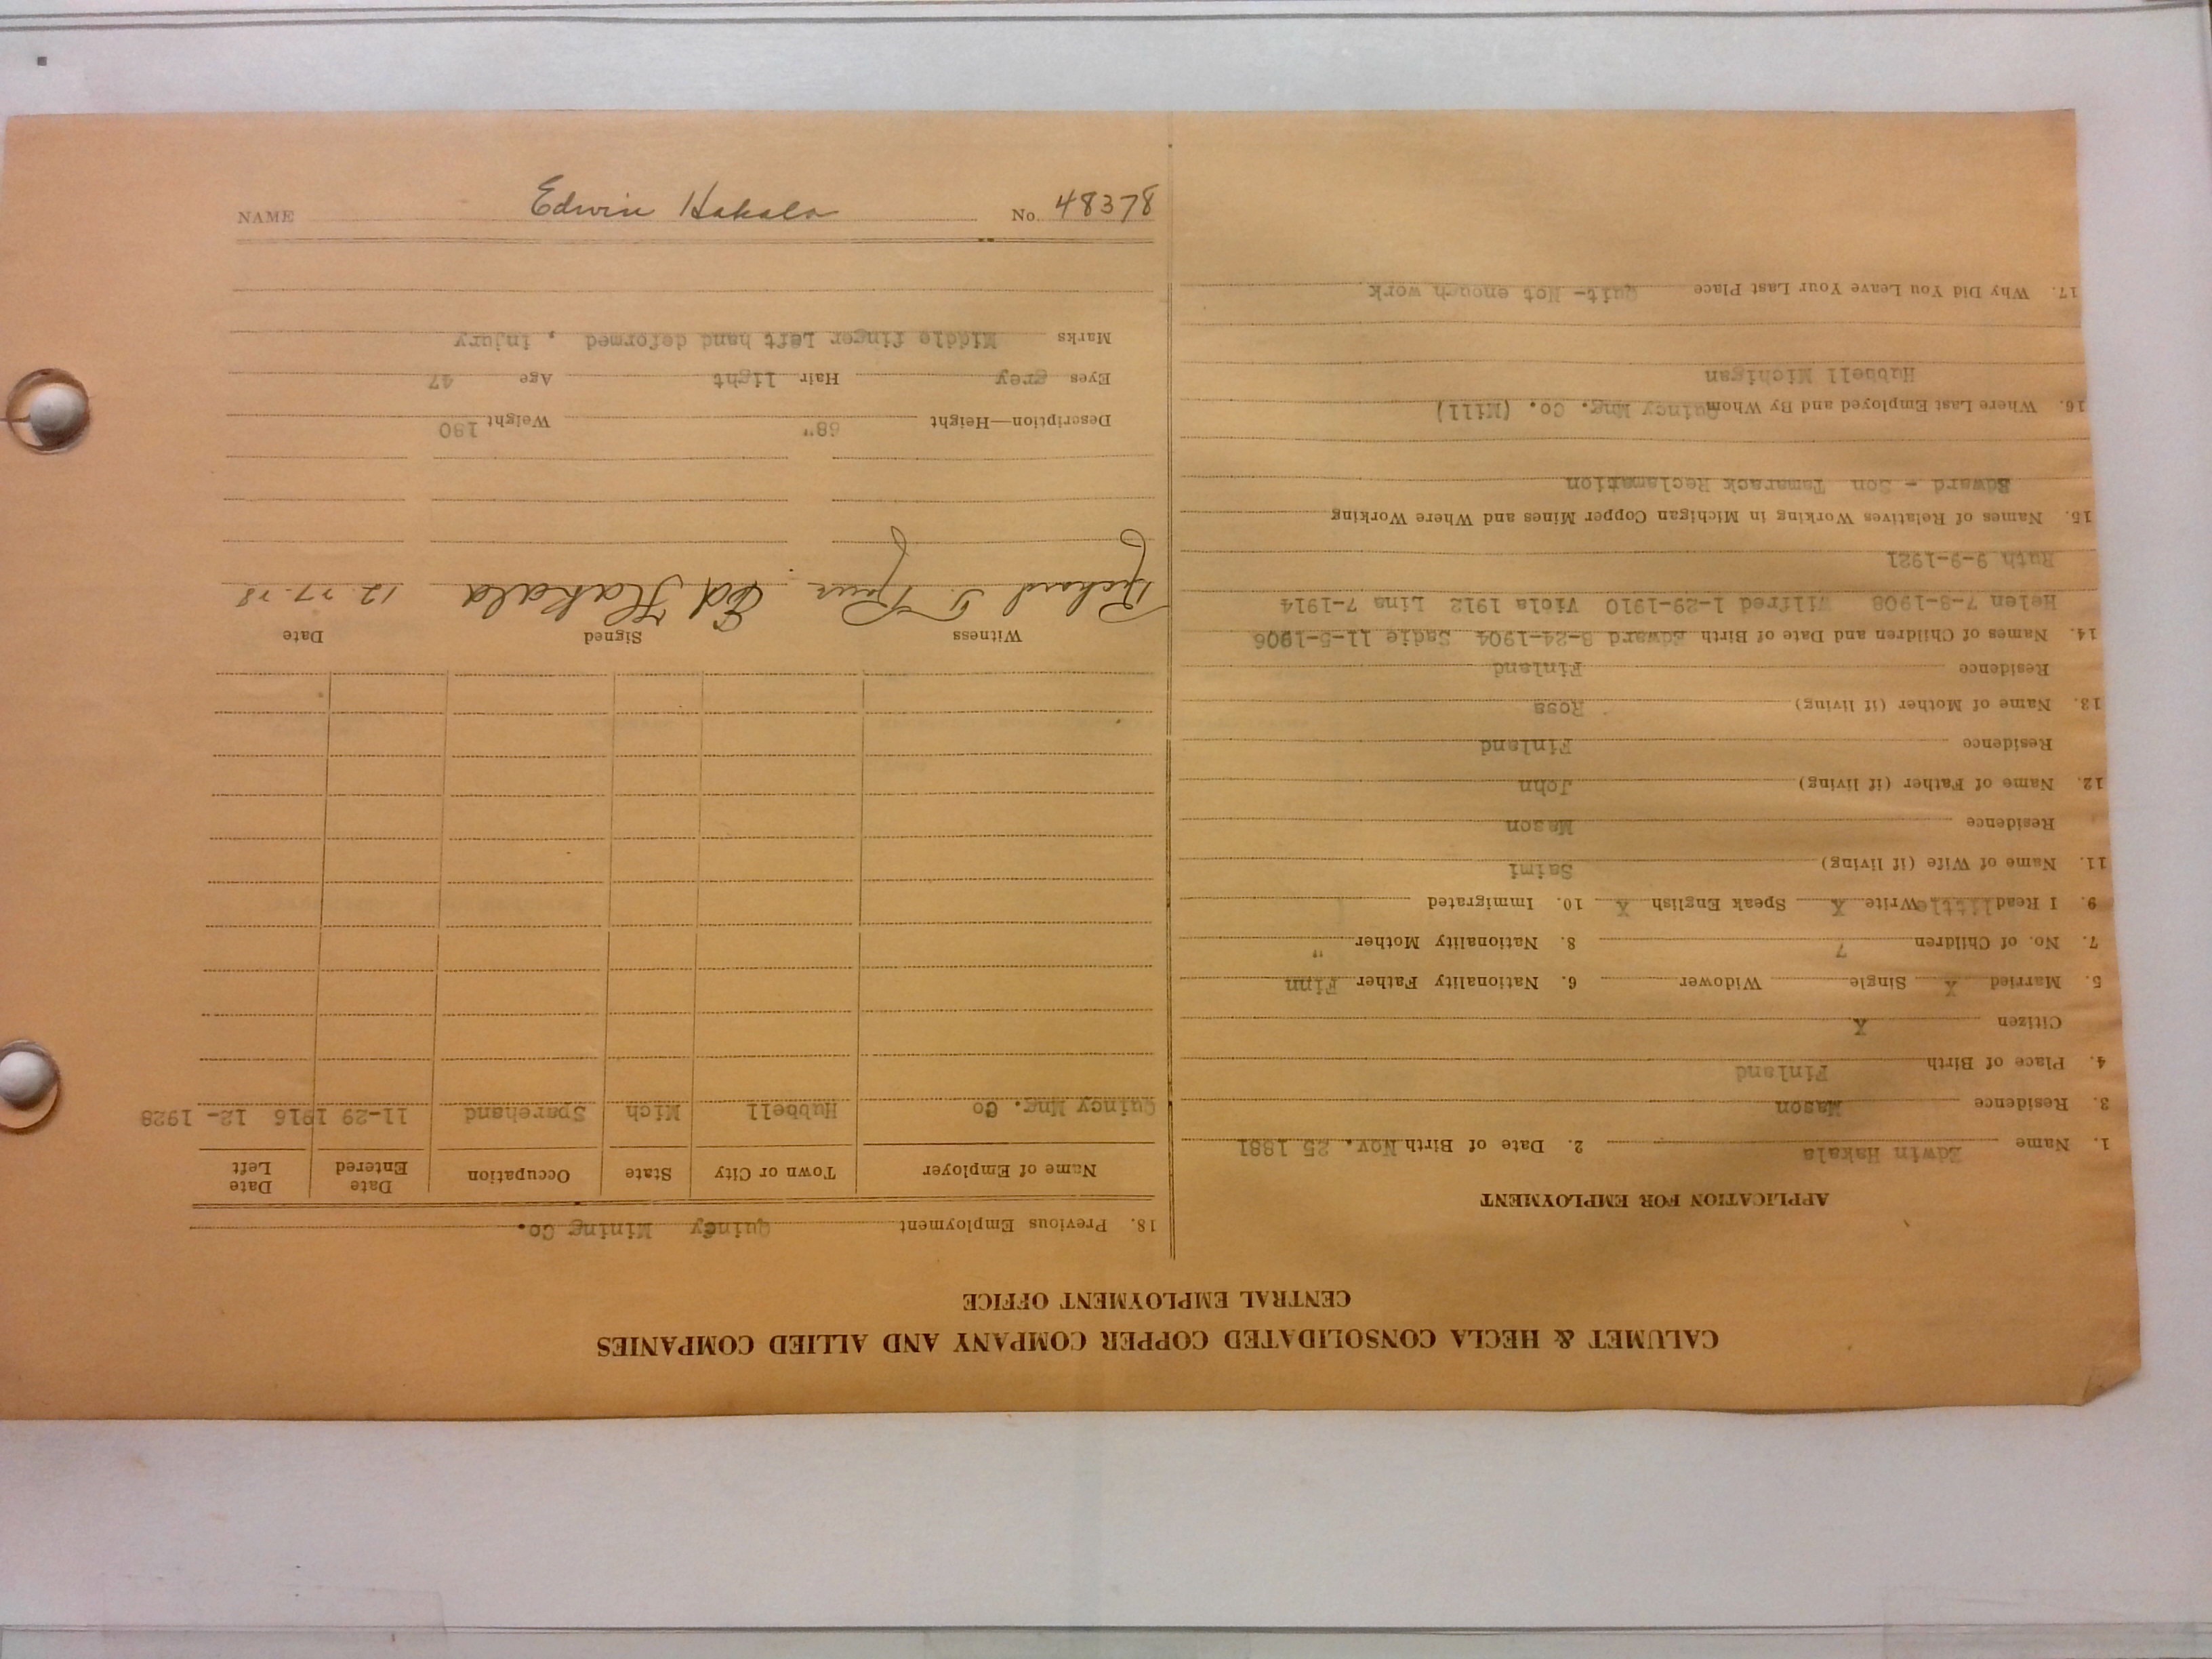 NAME Edwin Hakala No. 48378
CALUMET & HECLA CONSOLIDATED COPPER COMPANY AND ALLIED COMPANIES
CENTRAL EMPLOYMENT OFFICE
APPLICATION FOR EMPLOYMENT
1. Name Edwin Hakala 2. Date of Birth Nov. 25 1881
3. Residence Mason
4. Place of Birth Finland
Citizen X
5. Married X Single Widower 6. Nationality Father Finn
7. No. of Children 7 8. Nationality Mother "
9. I Read little Write X Speak English X 10. Immigrated
11. Name of Wife (if living) Saimi
Residence Mason
12. Name of Father (if living) John
Residence Finland
13. Name of Mother (if living) Rosa
Residence Finland
14. Names of Children and Date of Birth Edward 8-24-1904 Sadie 11-5-1906
Helen 7-8-1908 Wilfred 1-29-1910 Viola 1912 Lina 7-1914
Ruth 9-9-1921
15. Names of Relatives Working in Michigan Copper Mines and Where Working
Edward - Son Tamarack Reclamation
16. Where Last Employed and By Whom Quincy Mng. Co. (Mill)
Hubbell Michigan
17. Why Did You Leave Your Last Place Quit- Not enough work
18. Previous Employment Quincy Mining Co.
Name of Employer Town or City State Occupation Date Entered Date Left
Quincy Mng. Co Hubbell Mich Sparehand 11-29 1916 12- 1928
Witness Signed Date
Richard Ed Hakala 12-27-28
Description—Height 68" Weight 180
Eyes grey Hair light Age 47
Marks Middle finger Left hand deformed , injury